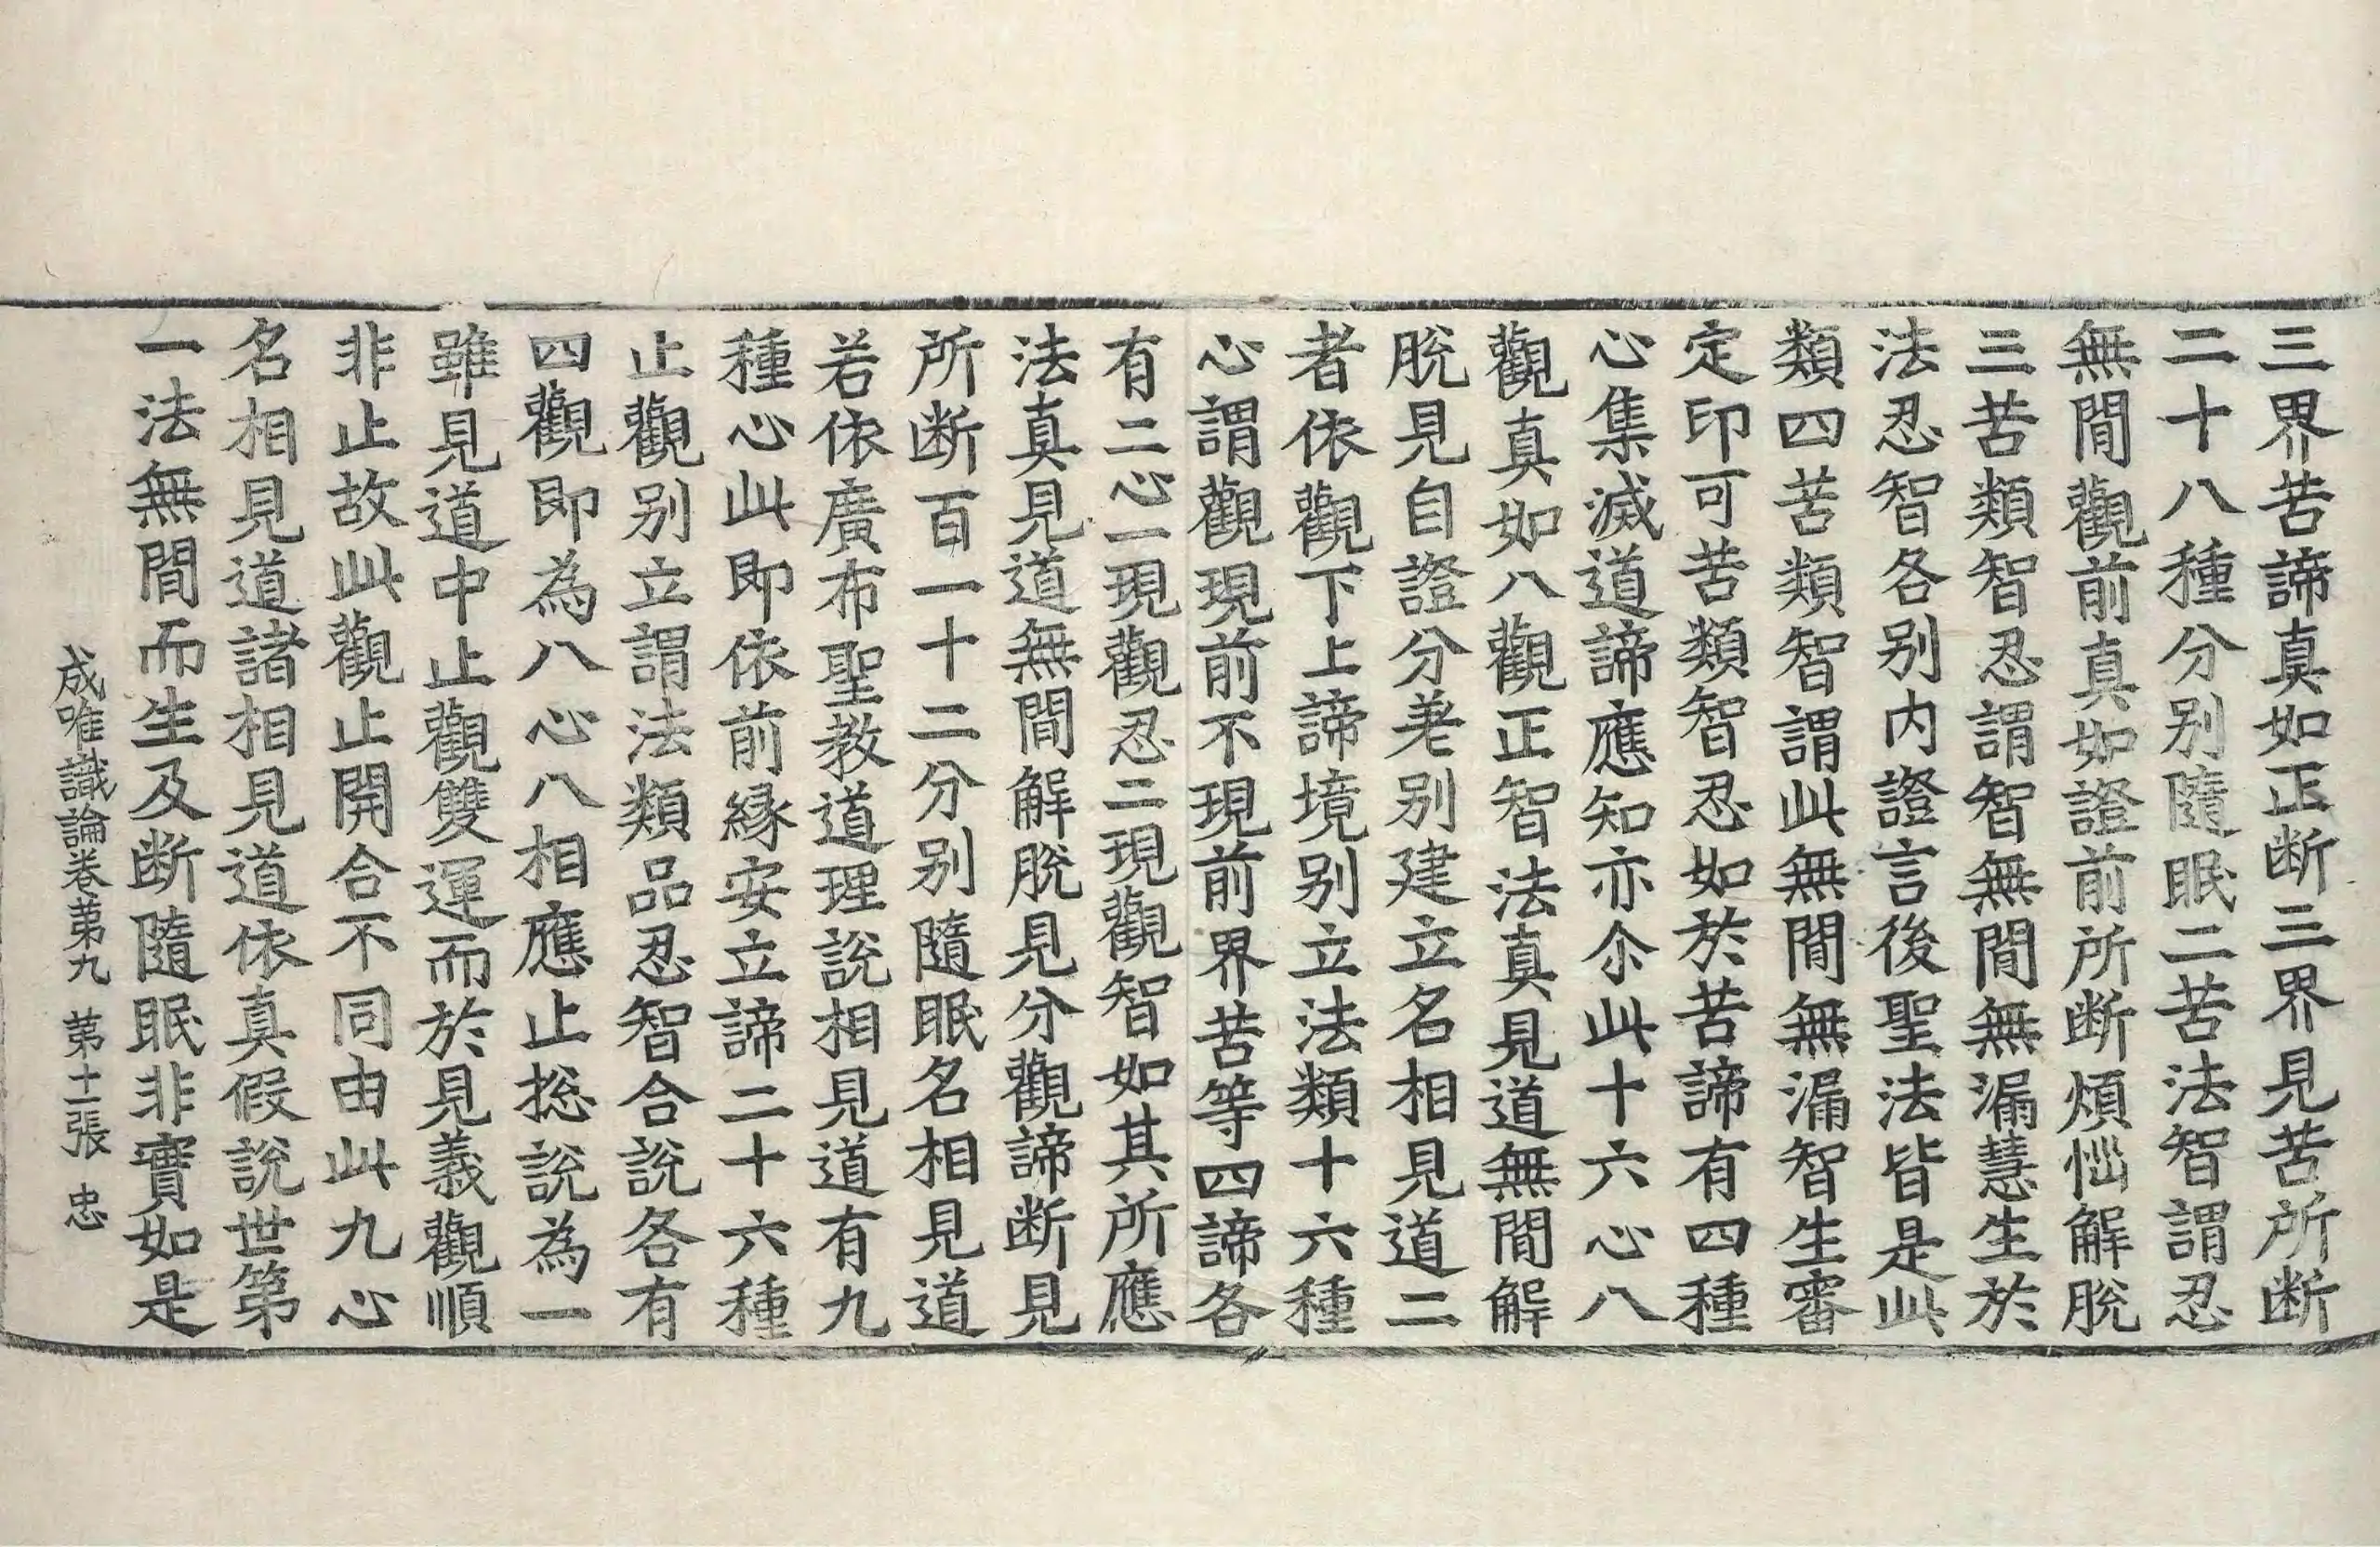 三界苦諦真如正断三界見苦所断
二十八種分别隨眠二苦法智謂忍
無間觀前真如證前所断煩惱解脫
三苦類智忍謂智無間無漏慧生於
法忍智各别内證言後聖法皆是此
類四苦類智謂此無間無漏智生審
定印可苦類智忍如於苦諦有四種
心集滅道諦應知亦尒此十六心八
觀真如八觀正智法真見道無間解
脫見自證分差别建立名相見道二
者依觀下上諦境别立法類十六種
心謂觀現前不現前界苦等四諦各
有二心一現觀忍二現觀智如其所應
法真見道無間解脫見分觀諦断見
所断百一十二分别隨眠名相見道
若依廣布聖教道理說相見道有九
種心此即依前緣安立諦二十六種
止觀别立謂法類品忍智合說各有
四觀即為八心八相應止揔說為一
雖見道中止觀雙運而於見義觀順
非止故此觀止開合不同由此九心
名相見道諸相見道依真假說世第
一法無間而生及断隨眠非實如是
成唯識論卷苐九 苐十一張 忠